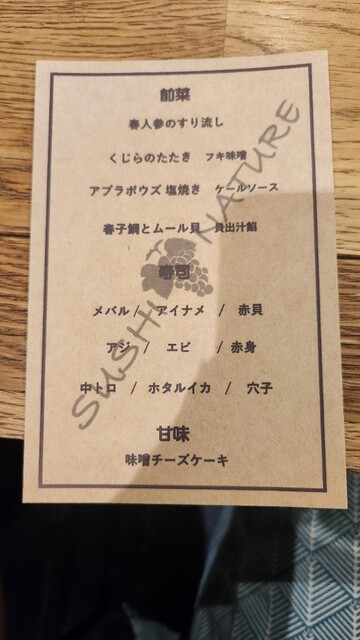 前菜
春人参のすり流し
くじらのたたき フキ味噌
アブラボウズ 塩焼き ケールソース
春子鯛とムール貝 貝出汁餡
寿司
メバル / アイナメ / 赤貝
アジ / エビ / 赤身
中トロ / ホタルイカ / 穴子
甘味
味噌チーズケーキ
SUSHI NATURE